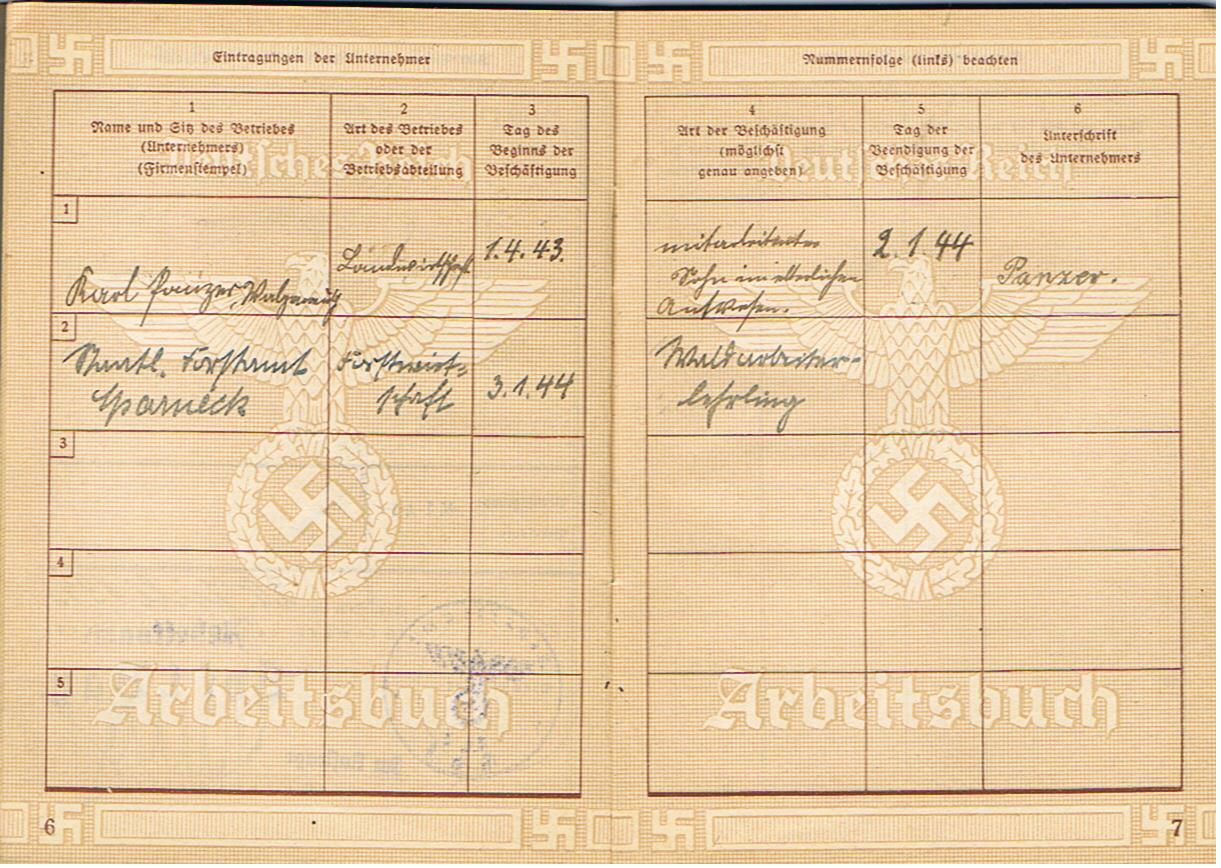 Eintragungen der Unternehmer
1
Name und Sitz des Betriebes
(Unternehmers)
(Firmenstempel)
2
Art des Betriebes
oder der
Betriebsabteilung
3
Tag des
Beginns der
Beschäftigung
Deutsches Reich
1
Karl Panzer,
Landwirtschaft
1.4.43.
2
Staatl. Forstamt
Sparneck
Forstwirt=
schaft
3.1.44
3
4
5
Arbeitsbuch
6
Nummernfolge (links) beachten
4
Art der Beschäftigung
(möglichst
genau angeben)
5
Tag der
Beendigung der
Beschäftigung
6
Unterschrift
des Unternehmers
Deutsches Reich
mitarbeitender
Sohn im elterlichen
Anwesen.
2.1.44
Panzer.
Waldarbeiter-
lehrling
Arbeitsbuch
7